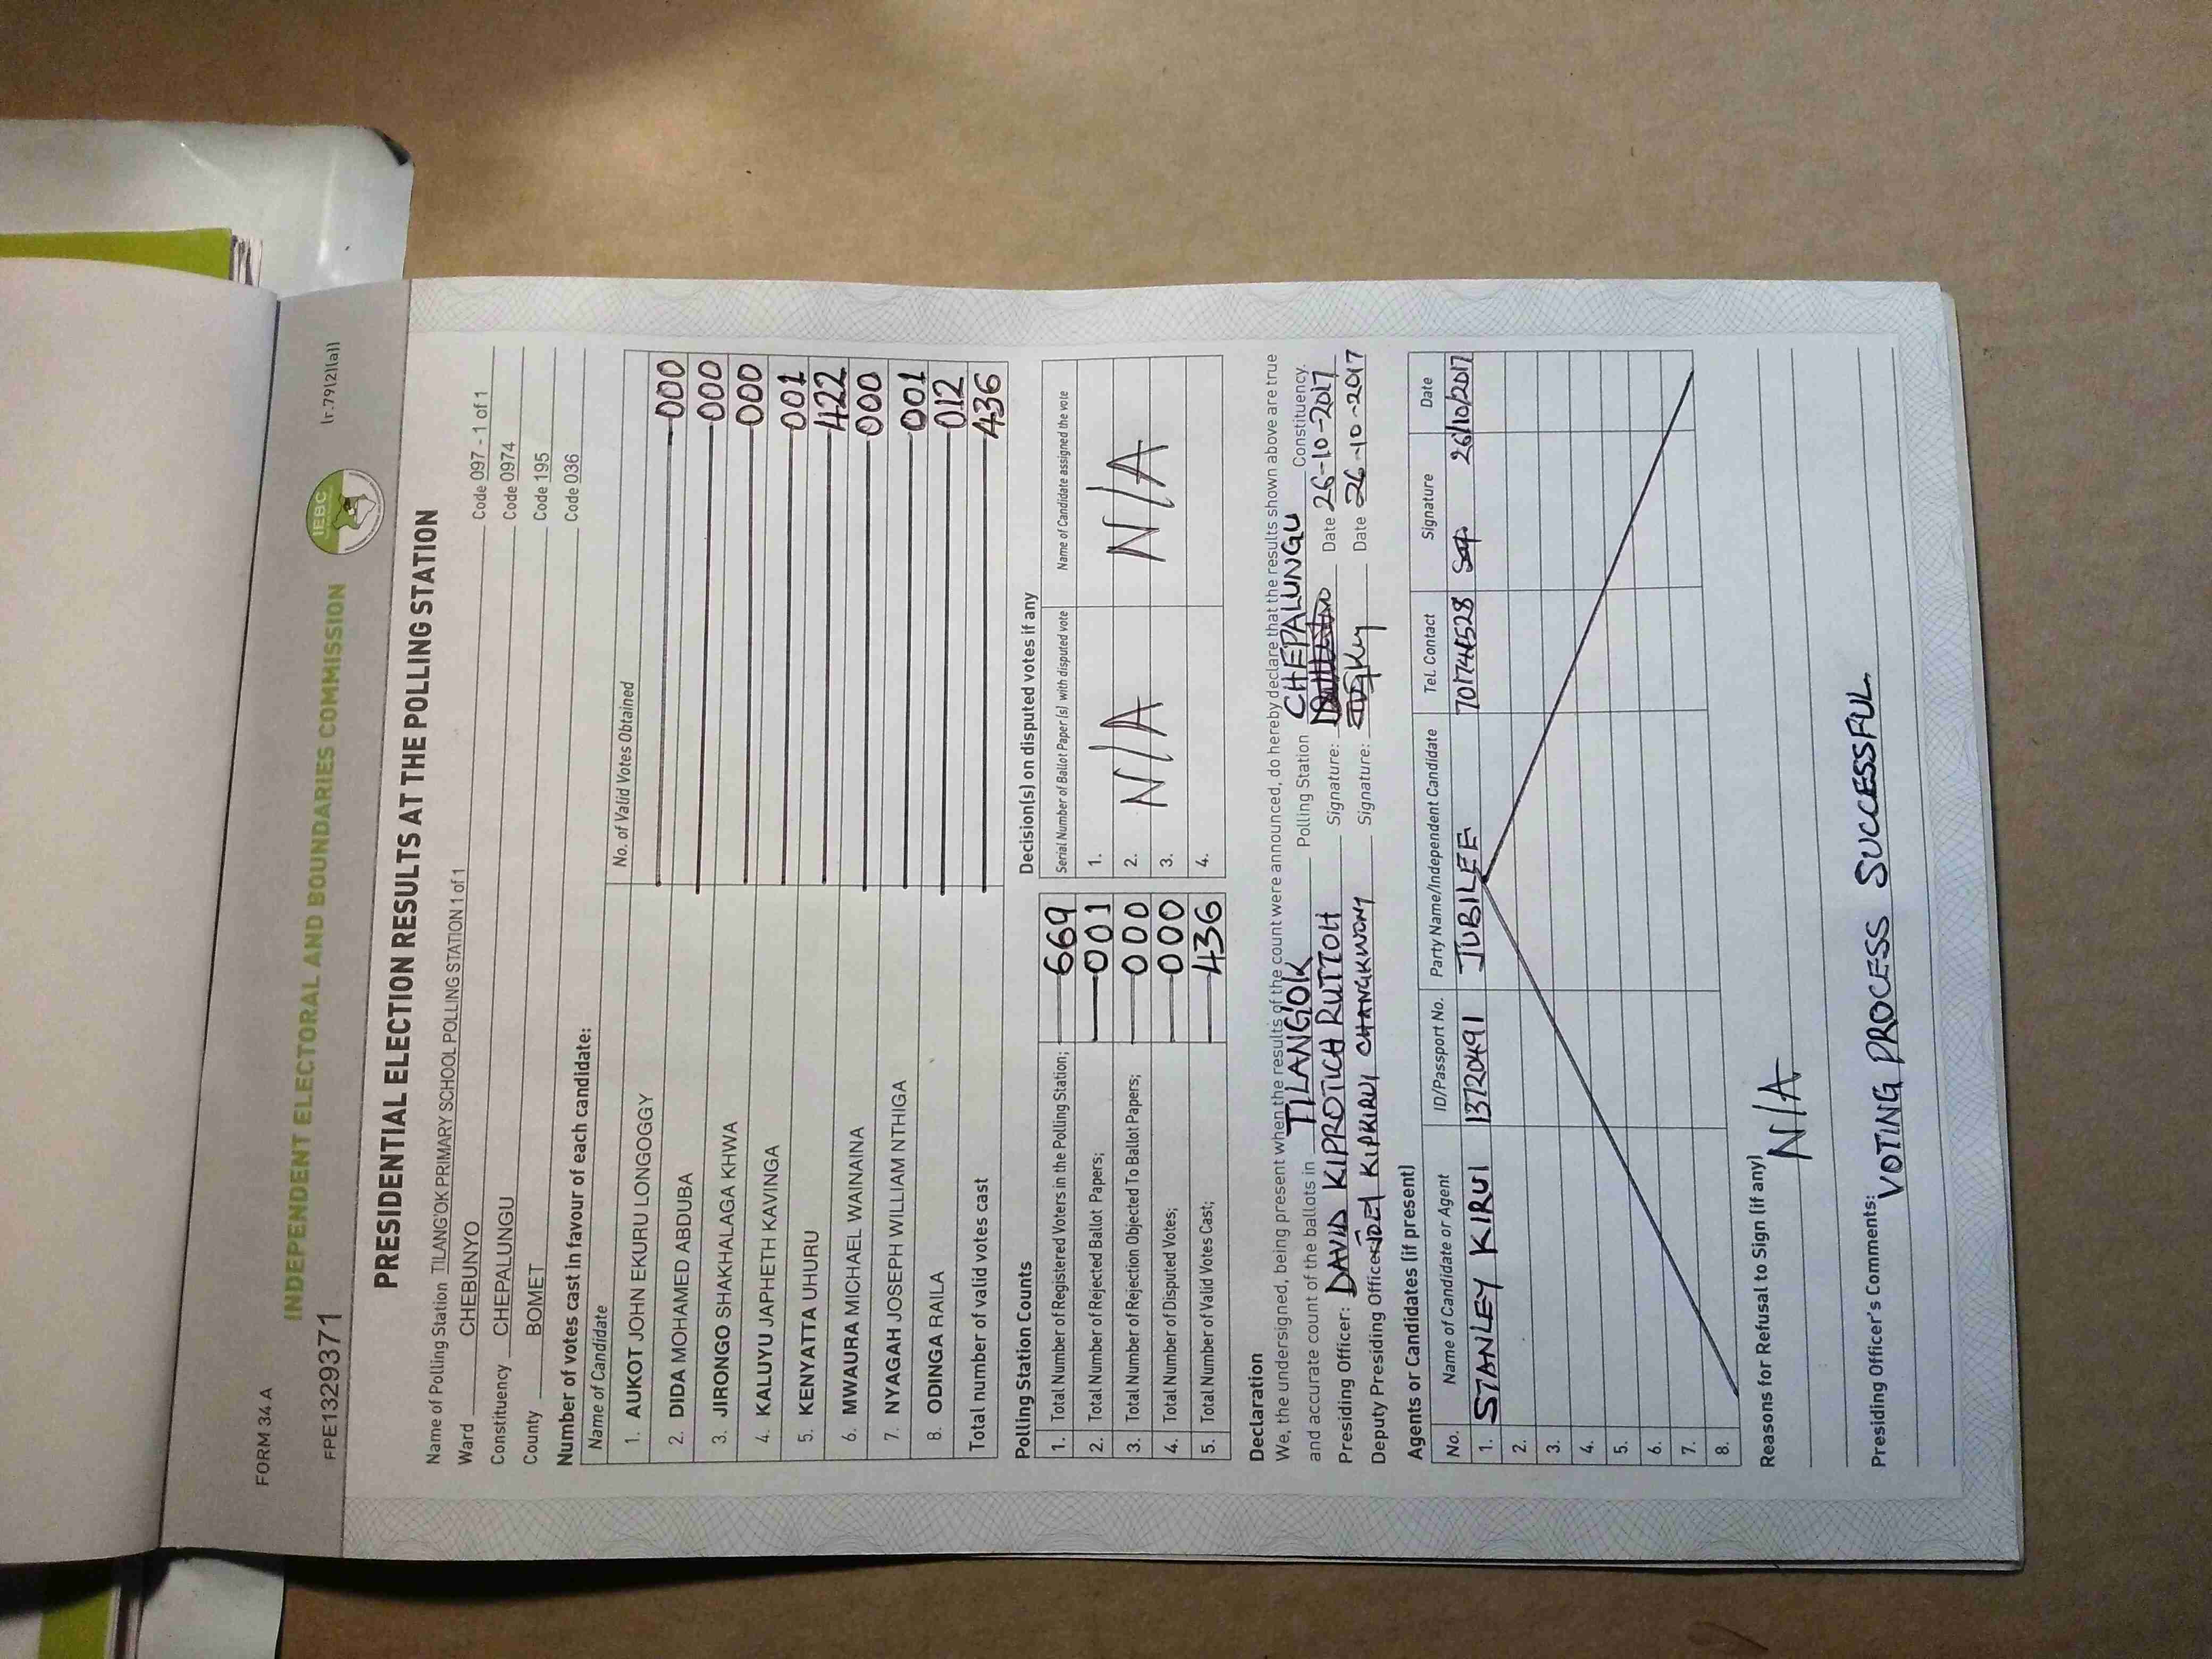 FORM 34 A
Ir.79(2)(a)]
INDEPENDENT ELECTORAL AND BOUNDARIES COMMISSION
IEBC
FPE1329371
PRESIDENTIAL ELECTION RESULTS AT THE POLLING STATION
Name of Polling Station TILANG'OK PRIMARY SCHOOL POLLING STATION 1 of 1 Code 097 - 1 of 1
Ward CHEBUNYO Code 0974
Constituency CHEPALUNGU Code 195
County BOMET Code 036
Number of votes cast in favour of each candidate:
Name of Candidate No. of Valid Votes Obtained
1. AUKOT JOHN EKURU LONGOGGY 000
2. DIDA MOHAMED ABDUBA 000
3. JIRONGO SHAKHALAGA KHWA 000
4. KALUYU JAPHETH KAVINGA 001
5. KENYATTA UHURU 422
6. MWAURA MICHAEL WAINAINA 000
7. NYAGAH JOSEPH WILLIAM NTHIGA 001
8. ODINGA RAILA 012
Total number of valid votes cast 436
Polling Station Counts
1. Total Number of Registered Voters in the Polling Station; 669
2. Total Number of Rejected Ballot Papers; 001
3. Total Number of Rejection Objected To Ballot Papers; 000
4. Total Number of Disputed Votes; 000
5. Total Number of Valid Votes Cast; 436
Decision(s) on disputed votes if any
Serial Number of Ballot Paper (s) with disputed vote Name of Candidate assigned the vote
1.
2. N/A N/A
3.
4.
Declaration
We, the undersigned, being present when the results of the count were announced, do hereby declare that the results shown above are true
and accurate count of the ballots in TILANGOK Polling Station CHEPALUNGU Constituency.
Presiding Officer: DAVID KIPROTICH RUTTOH Signature: Date 26-10-2017
Deputy Presiding Officer: JOEL KIPKIRUI CHANGKWONY Signature: Date 26-10-2017
Agents or Candidates (if present)
No. Name of Candidate or Agent ID/Passport No. Party Name/Independent Candidate Tel. Contact Signature Date
1. STANLEY KIRUI 13720491 JUBILEE 701744528 26/10/2017
2.
3.
4.
5.
6.
7.
8.
Reasons for Refusal to Sign (if any)
N/A
Presiding Officer's Comments:
VOTING PROCESS SUCCESSFUL.